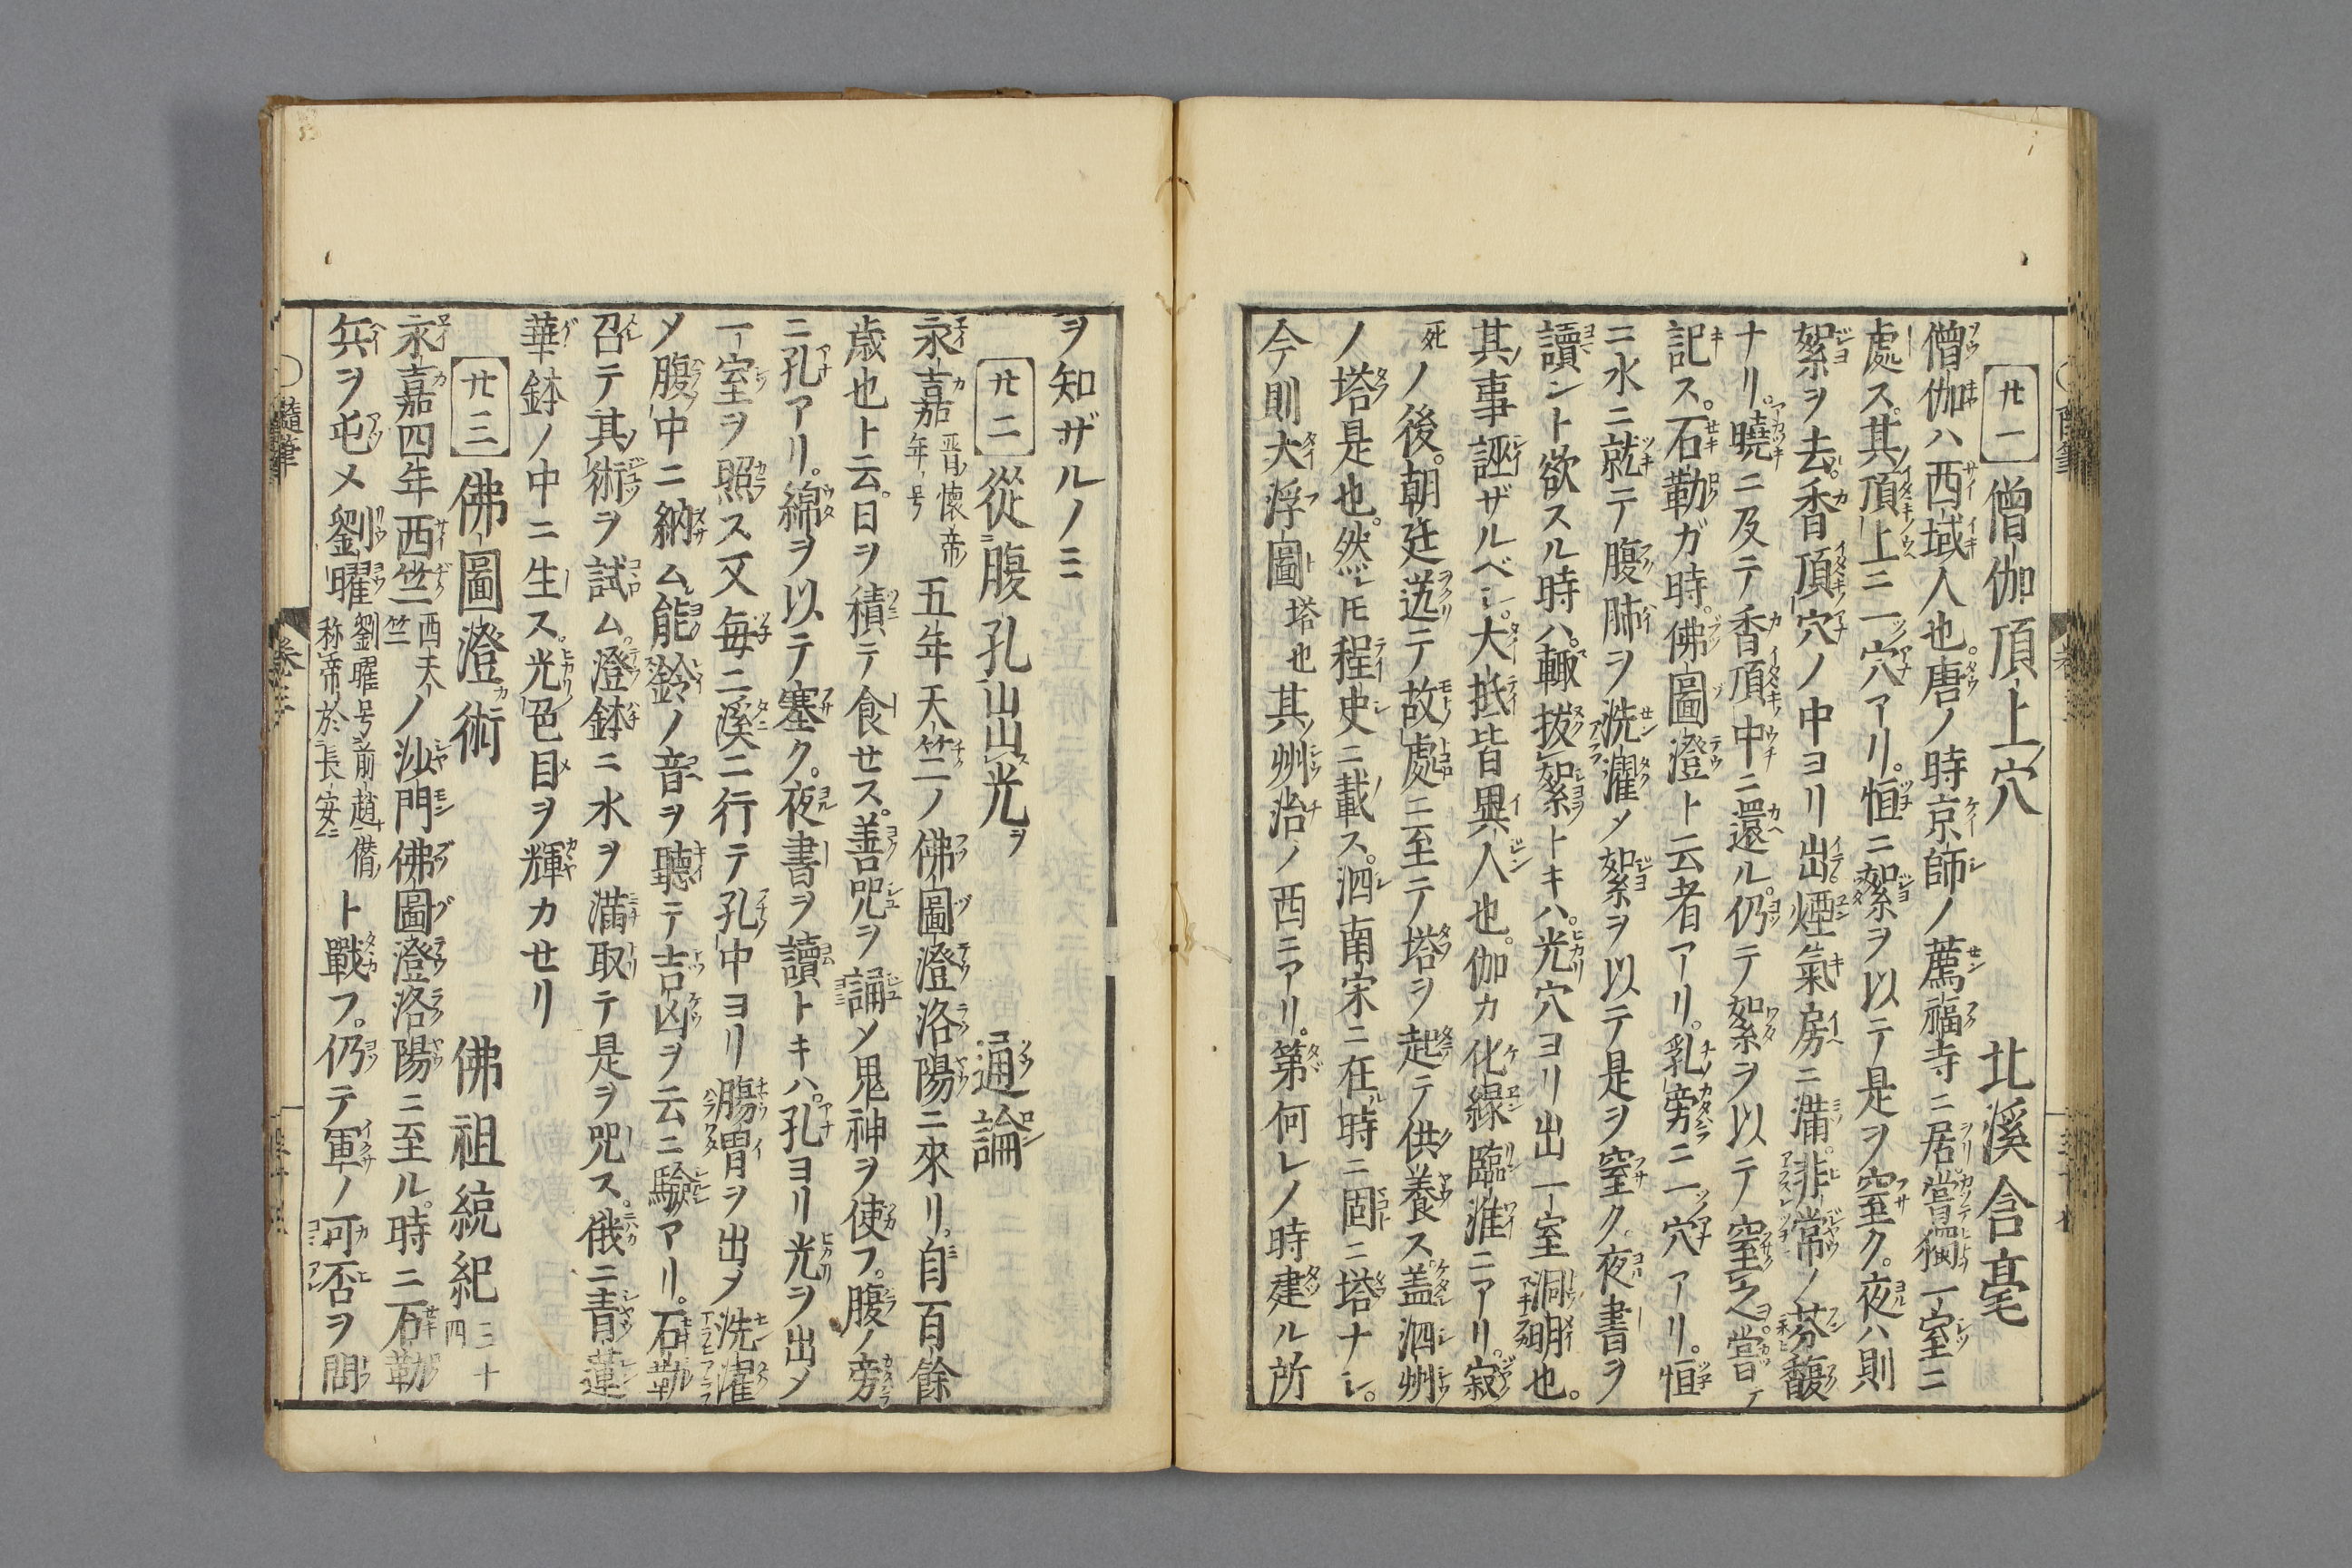 〔廿一〕僧伽頂上穴 北溪含毫
僧伽ハ西域人也。唐ノ時京師ノ薦福寺ニ居。嘗獨一室ニ
處ス。其頂上ニ一穴アリ。恒ニ絮ヲ以テ是ヲ窒ク。夜ハ則
絮ヲ去。香頂穴ノ中ヨリ出。煙氣房ニ滿。非常ノ芬馥
ナリ。曉ニ及テ香頂中ニ還ル。仍テ絮ヲ以テ窒之。嘗テ
記ス。石勒ガ時。佛圖澄ト云者アリ。乳旁ニ一穴アリ。恒
ニ水ニ就テ腹肺ヲ洗濯メ絮ヲ以テ是ヲ窒ク。夜書ヲ
讀ント欲スル時ハ。輙拔絮トキハ。光穴ヨリ出一室洞明也。
其事誣ザルベシ。大抵皆異人也。伽カ化緣臨淮ニアリ。寂
死ノ後。朝廷送テ故處ニ至テ塔ヲ起テ供養ス。盖泗州
ノ塔是也。然レ𪜈程史ニ載ス。泗南宋ニ在時ニ固ニ塔ナシ。
今則大浮圖塔也其州治ノ西ニアリ。第何レノ時建ル所
ヲ知ザルノミ
〔廿二〕從腹孔出光ヲ 通論
永嘉晋懷帝年号五年天竺ノ佛圖澄洛陽ニ來リ。自百餘
歳也ト云。日ヲ積テ食せス。善咒ヲ誦メ鬼神ヲ使フ。腹ノ旁
ニ孔アリ。綿ヲ以テ塞ク。夜書ヲ讀トキハ。孔ヨリ光ヲ出メ
一室ヲ照ス又毎ニ溪ニ行テ孔中ヨリ腸胃ヲ出メ洗濯
メ腹中ニ納ム能鈴ノ音ヲ聽テ吉凶ヲ云ニ驗アリ。石勒
召テ其術ヲ試ム。澄鉢ニ水ヲ滿取テ是ヲ咒ス。俄ニ青蓮
華鉢ノ中ニ生ス。光色目ヲ輝カせリ
〔廿三〕佛圖澄カ術 佛祖統紀三十四
永嘉四年西竺西天竺ノ沙門佛圖澄洛陽ニ至ル。時ニ石勒
兵ヲ屯メ劉曜劉曜号前趙僣称帝於長安ニト戰フ。仍テ軍ノ可否ヲ問
隨筆
卷三